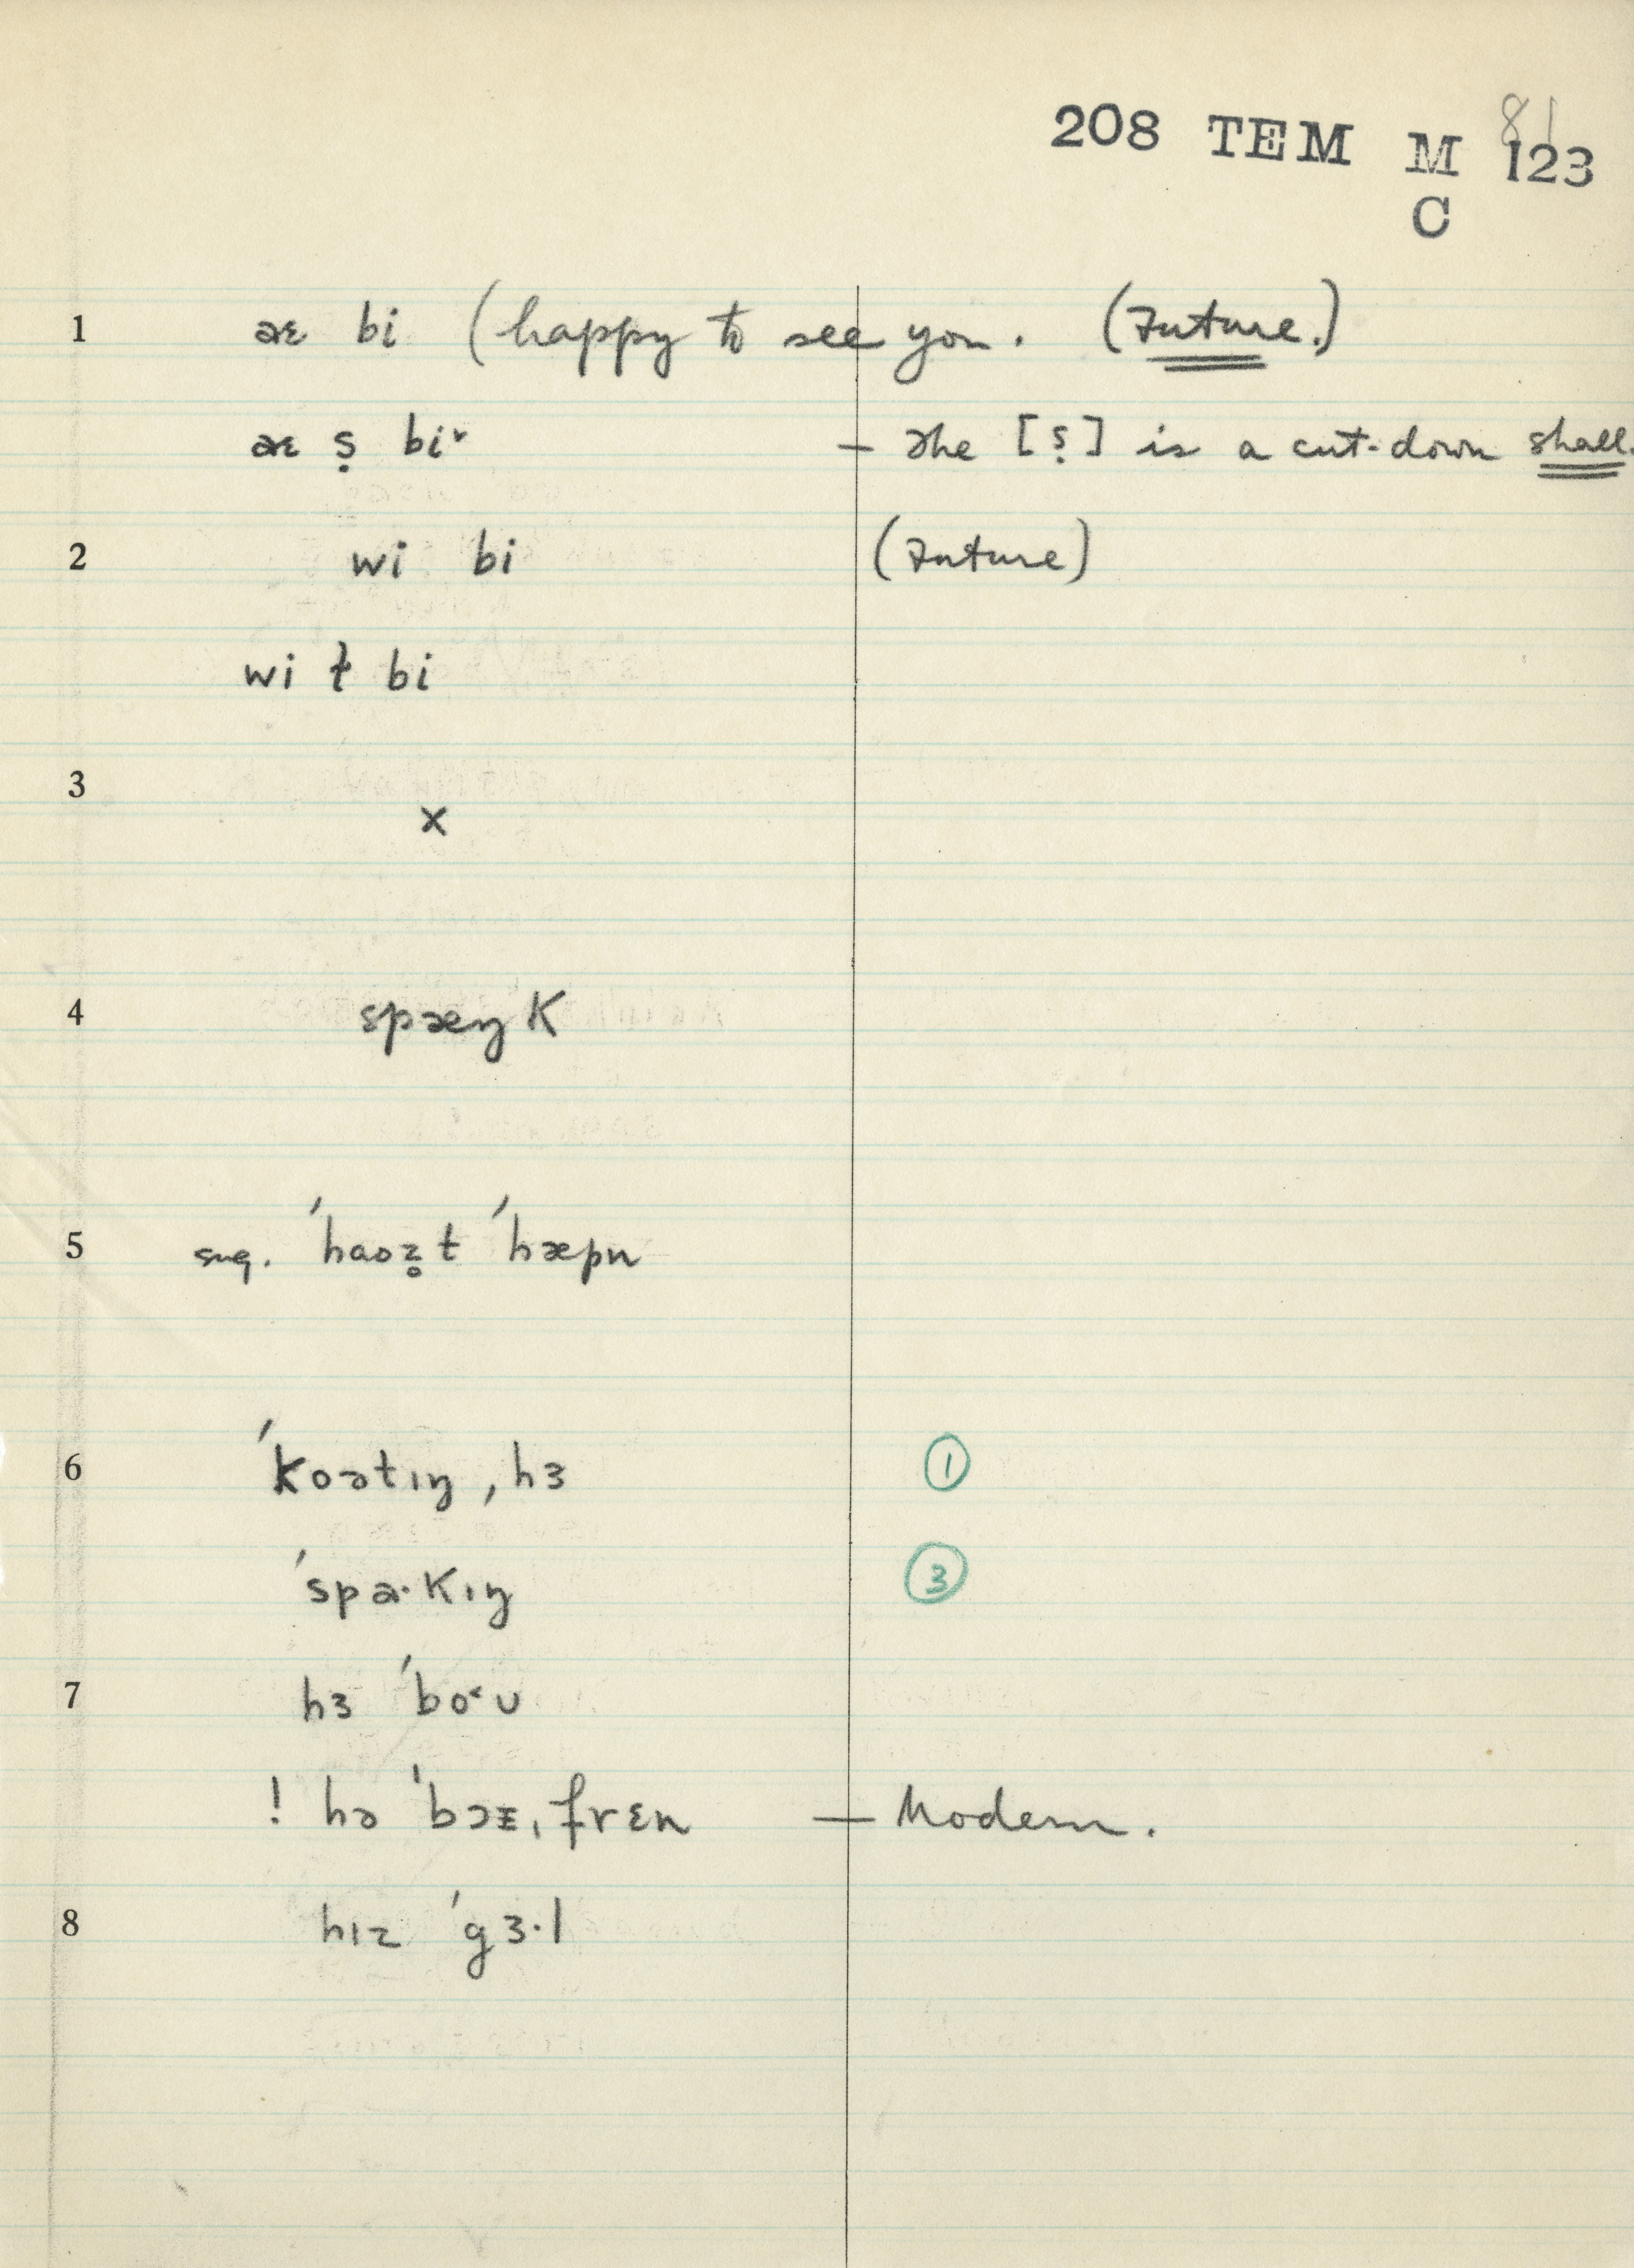 81
208 TEM M 123
C
1 æɛ bi (happy to see you. (Future.)
æɛ ṣ bi˅ — The [ṣ] is a cut-down shall.
2 wi bi (Future)
wi ɫ bi
3 ×
4 spæŋK
5 sug. ˊhaoz̥t ˊhæpn
6 ˊkoətıŋ, hɜ ①
ˊspa·Kıŋ ③
7 hɜ ˊbo˂ʊ
! hə ˈbɔᵻ, frɛn — Modern.
8 hız ˊgɜ·l